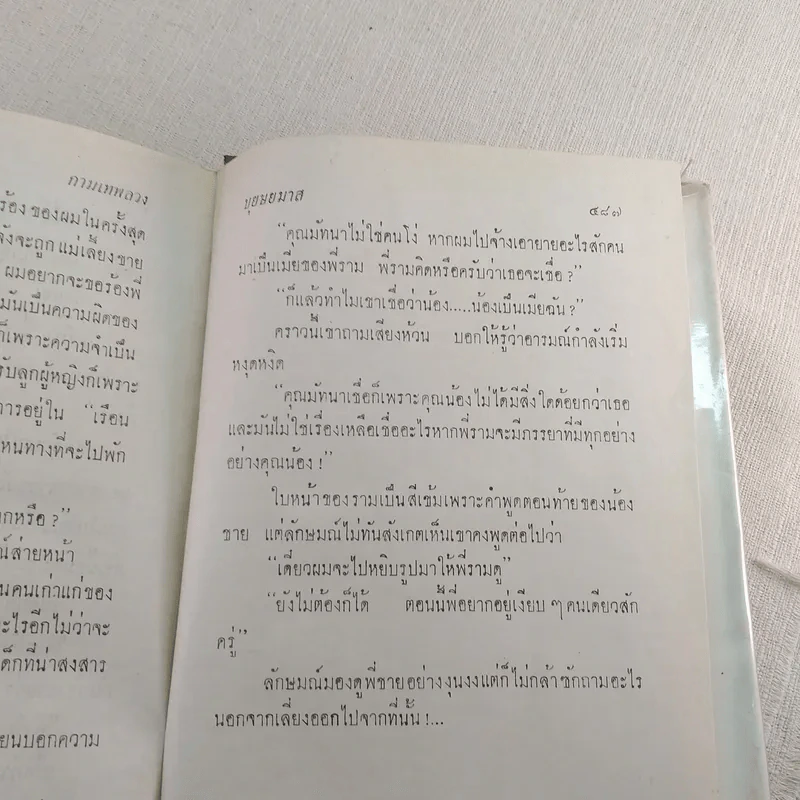 กามเทพลวง
ร้องของผมในครั้งสุด
ังจะถูกแม่เลี้ยงขาย
ผมอยากจะขอร้องพี่
มันเป็นความผิดของ
ก็เพราะความจำเป็น
รับลูกผู้หญิงก็เพราะ
การอยู่ใน “เรือน
หนทางที่จะไปพัก
กหรือ ?”
ณ์ส่ายหน้า
นคนเก่าแก่ของ
ะไรอีกไม่ว่าจะ
ด็กที่น่าสงสาร
ยนบอกความ
บุษยมาส
๔๘๗
“คุณมัทนาไม่ใช่คนโง่ หากผมไปจ้างเอายายอะไรสักคน
มาเป็นเมียของพี่ราม พี่รามคิดหรือครับว่าเธอจะเชื่อ ?”
“ก็แล้วทำไมเขาเชื่อว่าน้อง.....น้องเป็นเมียฉัน ?”
คราวนี้เขาถามเสียงห้วน บอกให้รู้ว่าอารมณ์กำลังเริ่ม
หงุดหงิด
“คุณมัทนาเชื่อก็เพราะคุณน้องไม่ได้มีสิ่งใดด้อยกว่าเธอ
และมันไม่ใช่เรื่องเหลือเชื่ออะไรหากพี่รามจะมีภรรยาที่มีทุกอย่าง
อย่างคุณน้อง !”
ใบหน้าของรามเป็นสีเข้มเพราะคำพูดตอนท้ายของน้อง
ชาย แต่ลักษมณ์ไม่ทันสังเกตเห็นเขาคงพูดต่อไปว่า
“เดี๋ยวผมจะไปหยิบรูปมาให้พี่รามดู”
“ยังไม่ต้องก็ได้ ตอนนี้พี่อยากอยู่เงียบ ๆ คนเดียวสัก
ครู่”
ลักษมณ์มองดูพี่ชายอย่างงุนงงแต่ก็ไม่กล้าซักถามอะไร
นอกจากเลี่ยงออกไปจากที่นั้น !...